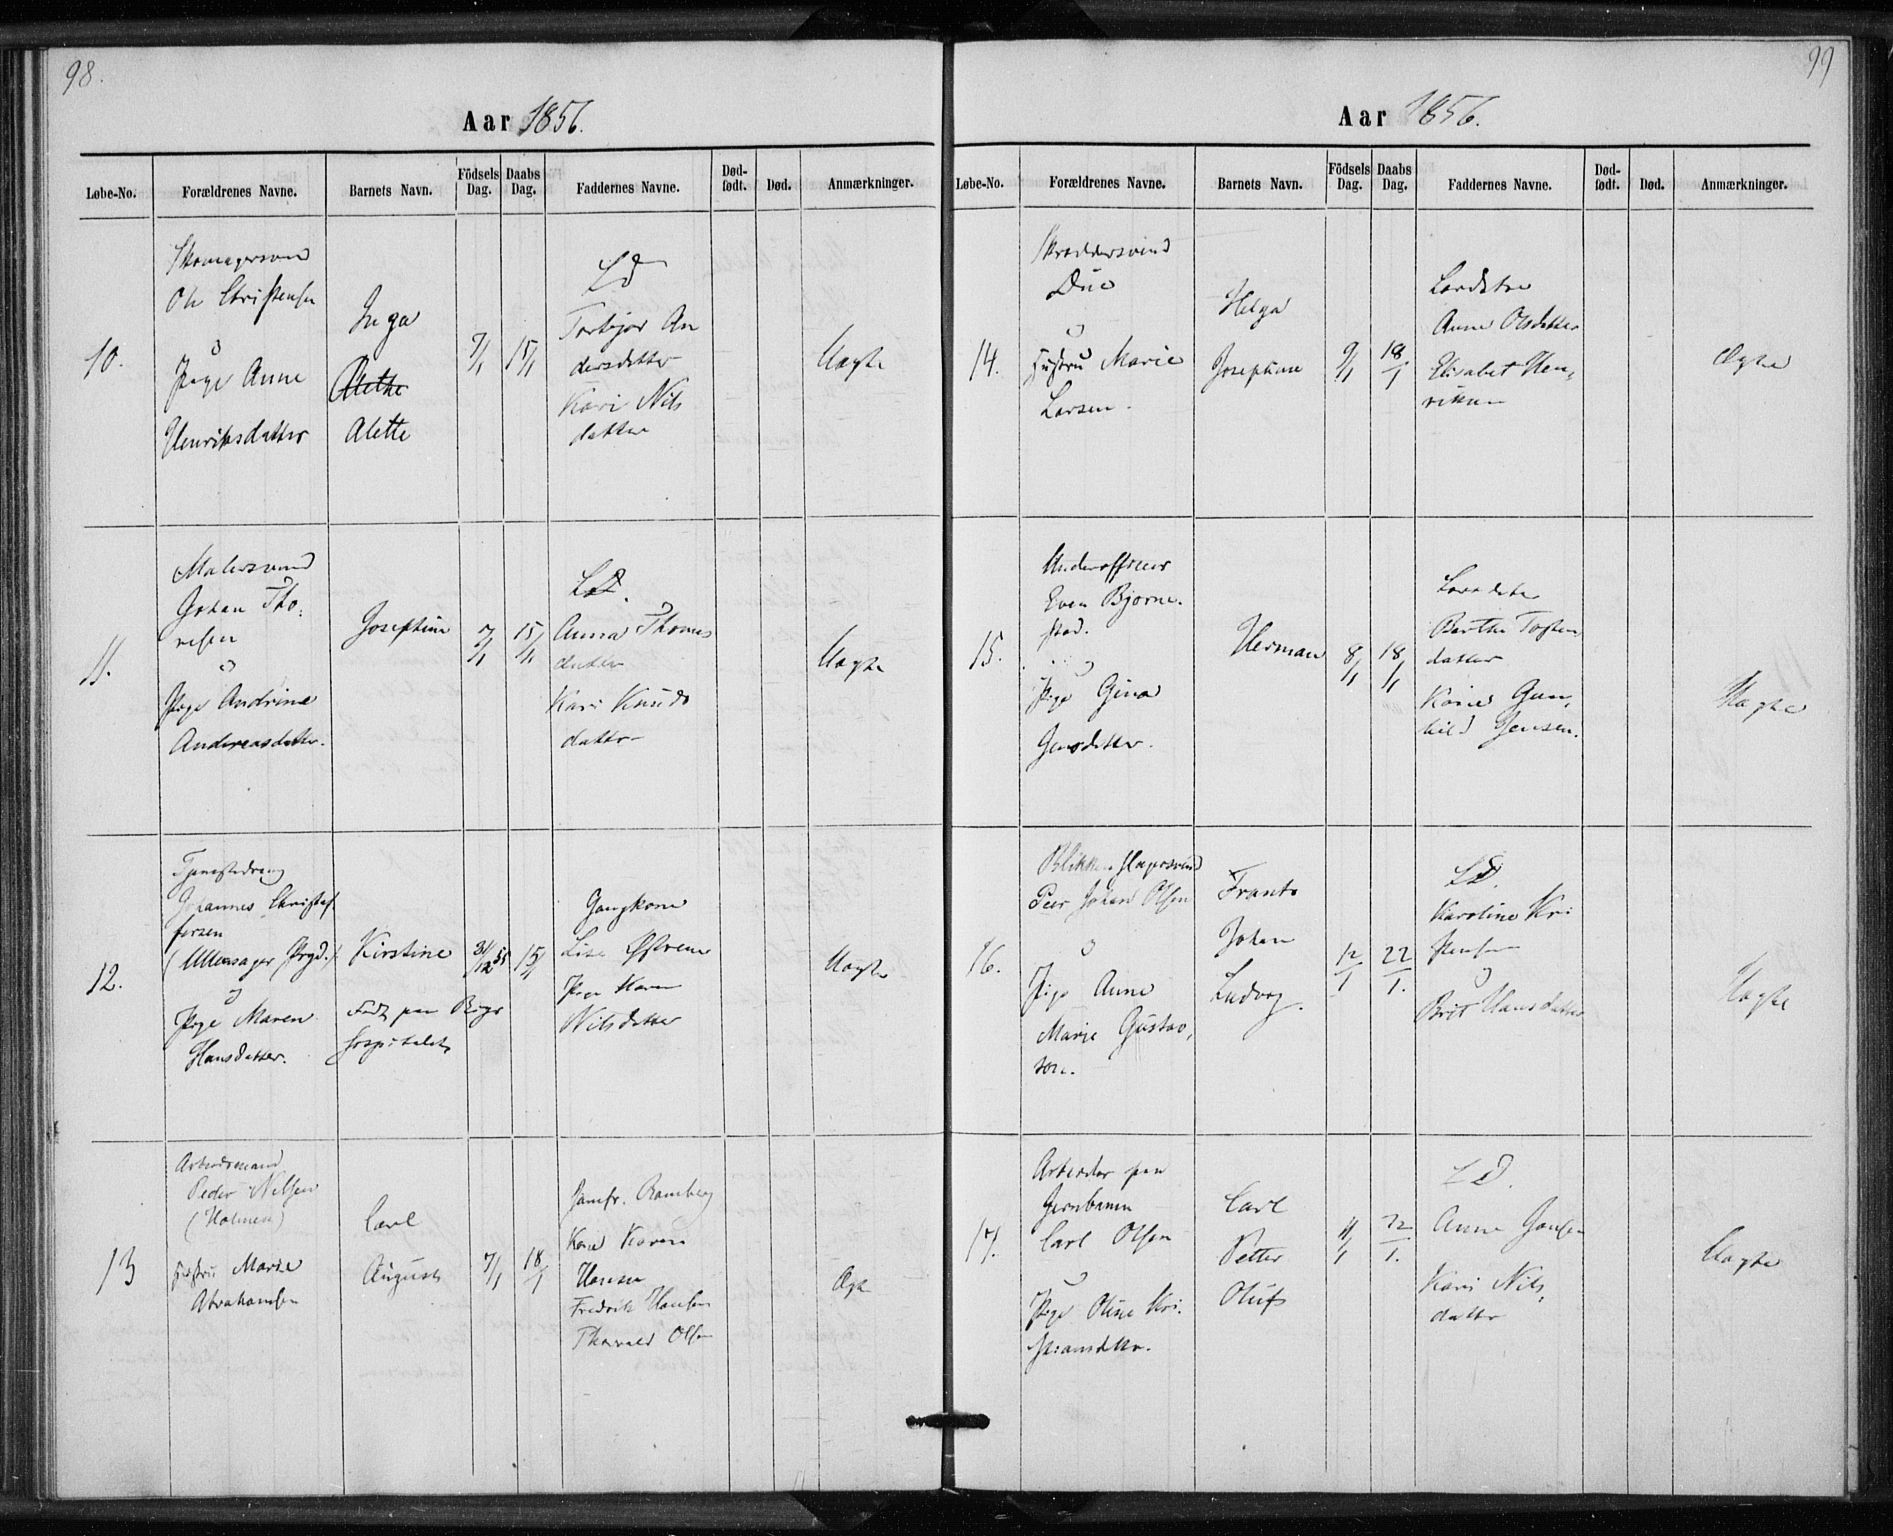 98.
Aar 1856.
Løbe-No. Forældrenes Navne. Barnets Navn. Fødsels Dag. Daabs Dag. Faddernes Navne. Død-født. Død. Anmærkninger.
10.
Skomagersvend
Ole Christensen
o
Pige Anne
Henriksdatter
Inga
Alette
7/1
15/1
LD
Torbjør An
dersdatter
Kari Nils
datter
Uægte
11.
Malersvend
Johan Tho-
resen
o
Pige Andrine
Andreasdatter.
Josephine
7/1
15/1
LD.
Anna Thomas
datter
Kari Knuds
datter
Uægte
12.
Tjenestedreng
Johannes Christof
fersen
(Ullensager Prgd.)
o
Pige Maren
Hansdatter.
Kirstine
Født paa Rigs
hospitalet
31/12 55
15/1
Gangkone
Lise
Pige Karen
Nilsdatter
Uægte
13
Arbeidsmand
Peder Nilsen
(Holmen)
Hustru Marie
Abrahamsen
Carl
August
7/1
18/1
Jomfr. Ramberg
Kone Karen
Hansen
Fredrik Hansen
Thorvald Olsen
Ægte
99
Aar 1856.
Løbe-No. Forældrenes Navne. Barnets Navn. Fødsels Dag. Daabs Dag. Faddernes Navne. Død-født. Død. Anmærkninger.
14.
Skræddersvend
Due
o
Hustru Marie
Larsen.
Helga
Josephine
9/1
18/1
Anne Olsdatter
Elisabet Hen-
riksen
Ægte
15.
Underofficer
Even Bjørne-
stad.
o
Pige Gina
Jensdatter.
Herman
8/1
18/1
Berthe Tosten
datter
Kone Gun-
hild Jensen.
Uægte
16.
Blikkenslagersvend
Peer Johan Olsen
o
Pige Anne
Marie Gustav-
son.
Frants
Johan
Ludvig.
12/1
22/1.
LD.
Karoline Kri
stensen
o
Brit Hansdatter
Uægte
17.
Arbeider paa
Jernbanen
Carl Olsen
o
Pige Oline Kri-
stiansdttr.
Carl
Petter
Oluf
11/1
22/1.
LD.
Anne Jonsen
Kari Nils-
datter
Uægte